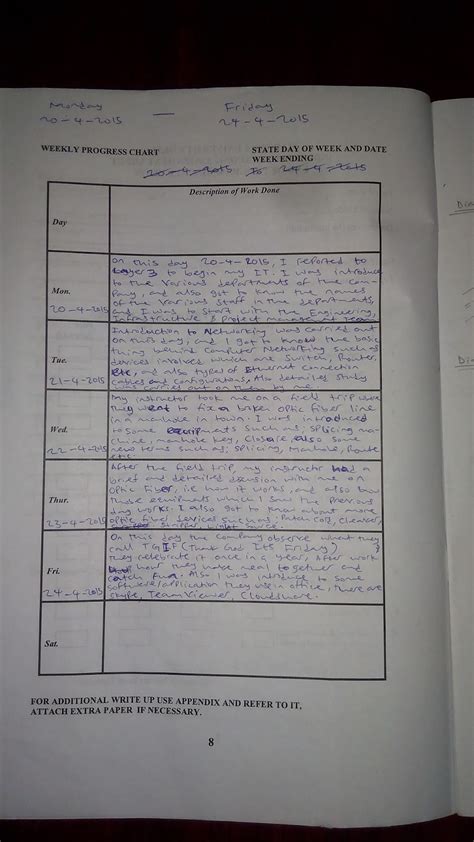 Monday — Friday
20-4-2015 24-4-2015
WEEKLY PROGRESS CHART
STATE DAY OF WEEK AND DATE
WEEK ENDING
20-4-2015 To 24-4-2015
Day
Description of Work Done
Mon.
20-4-2015
On this day 20-4-2015, I reported to
Layer3 to begin my IT. I was introduce
to the various departments of the com-
pany, and also got to know the names
of the various staff in the departments,
and I was to start with the Engineering,
Infrastructure & Project management Team
Tue.
21-4-2015
Introduction to Networking was carried out
on this day, and I got to know the basic
thing behind Computer Networking such as
devices involved which are Switch, Router,
etc, and also types of Ethernet connection
cables and configurations, Also detailed study
was carried out on them by me.
Wed.
22-4-2015
My instructor took me on a field trip where
they went to fix a broken optic fiber line
in a manhole in town. I was introduced
to some equipments such as; splicing ma-
chine, manhole key, Closure. also some
new terms such as; splicing, Manhole, Route
etc.
Thur.
23-4-2015
After the field trip, my instructor had a
brief and detailed discusion with me on
Optic Fiber, i.e how it works, and also how
those equipments which I saw the previous
day works. I also got to know about more
optic fiber devices such as; Patch cord, cleanser,
stripper, Light source.
Fri.
24-4-2015
On this day the company observe what they
call TGIF (Thank God Its Friday)
they celebrate it once in a year, After work
how they have meal together and
catch fun. Also I was introduce to some
software/application they use in office, there are
Skype, TeamViewer, Cloudshare.
Sat.
FOR ADDITIONAL WRITE UP USE APPENDIX AND REFER TO IT,
ATTACH EXTRA PAPER IF NECESSARY.
8